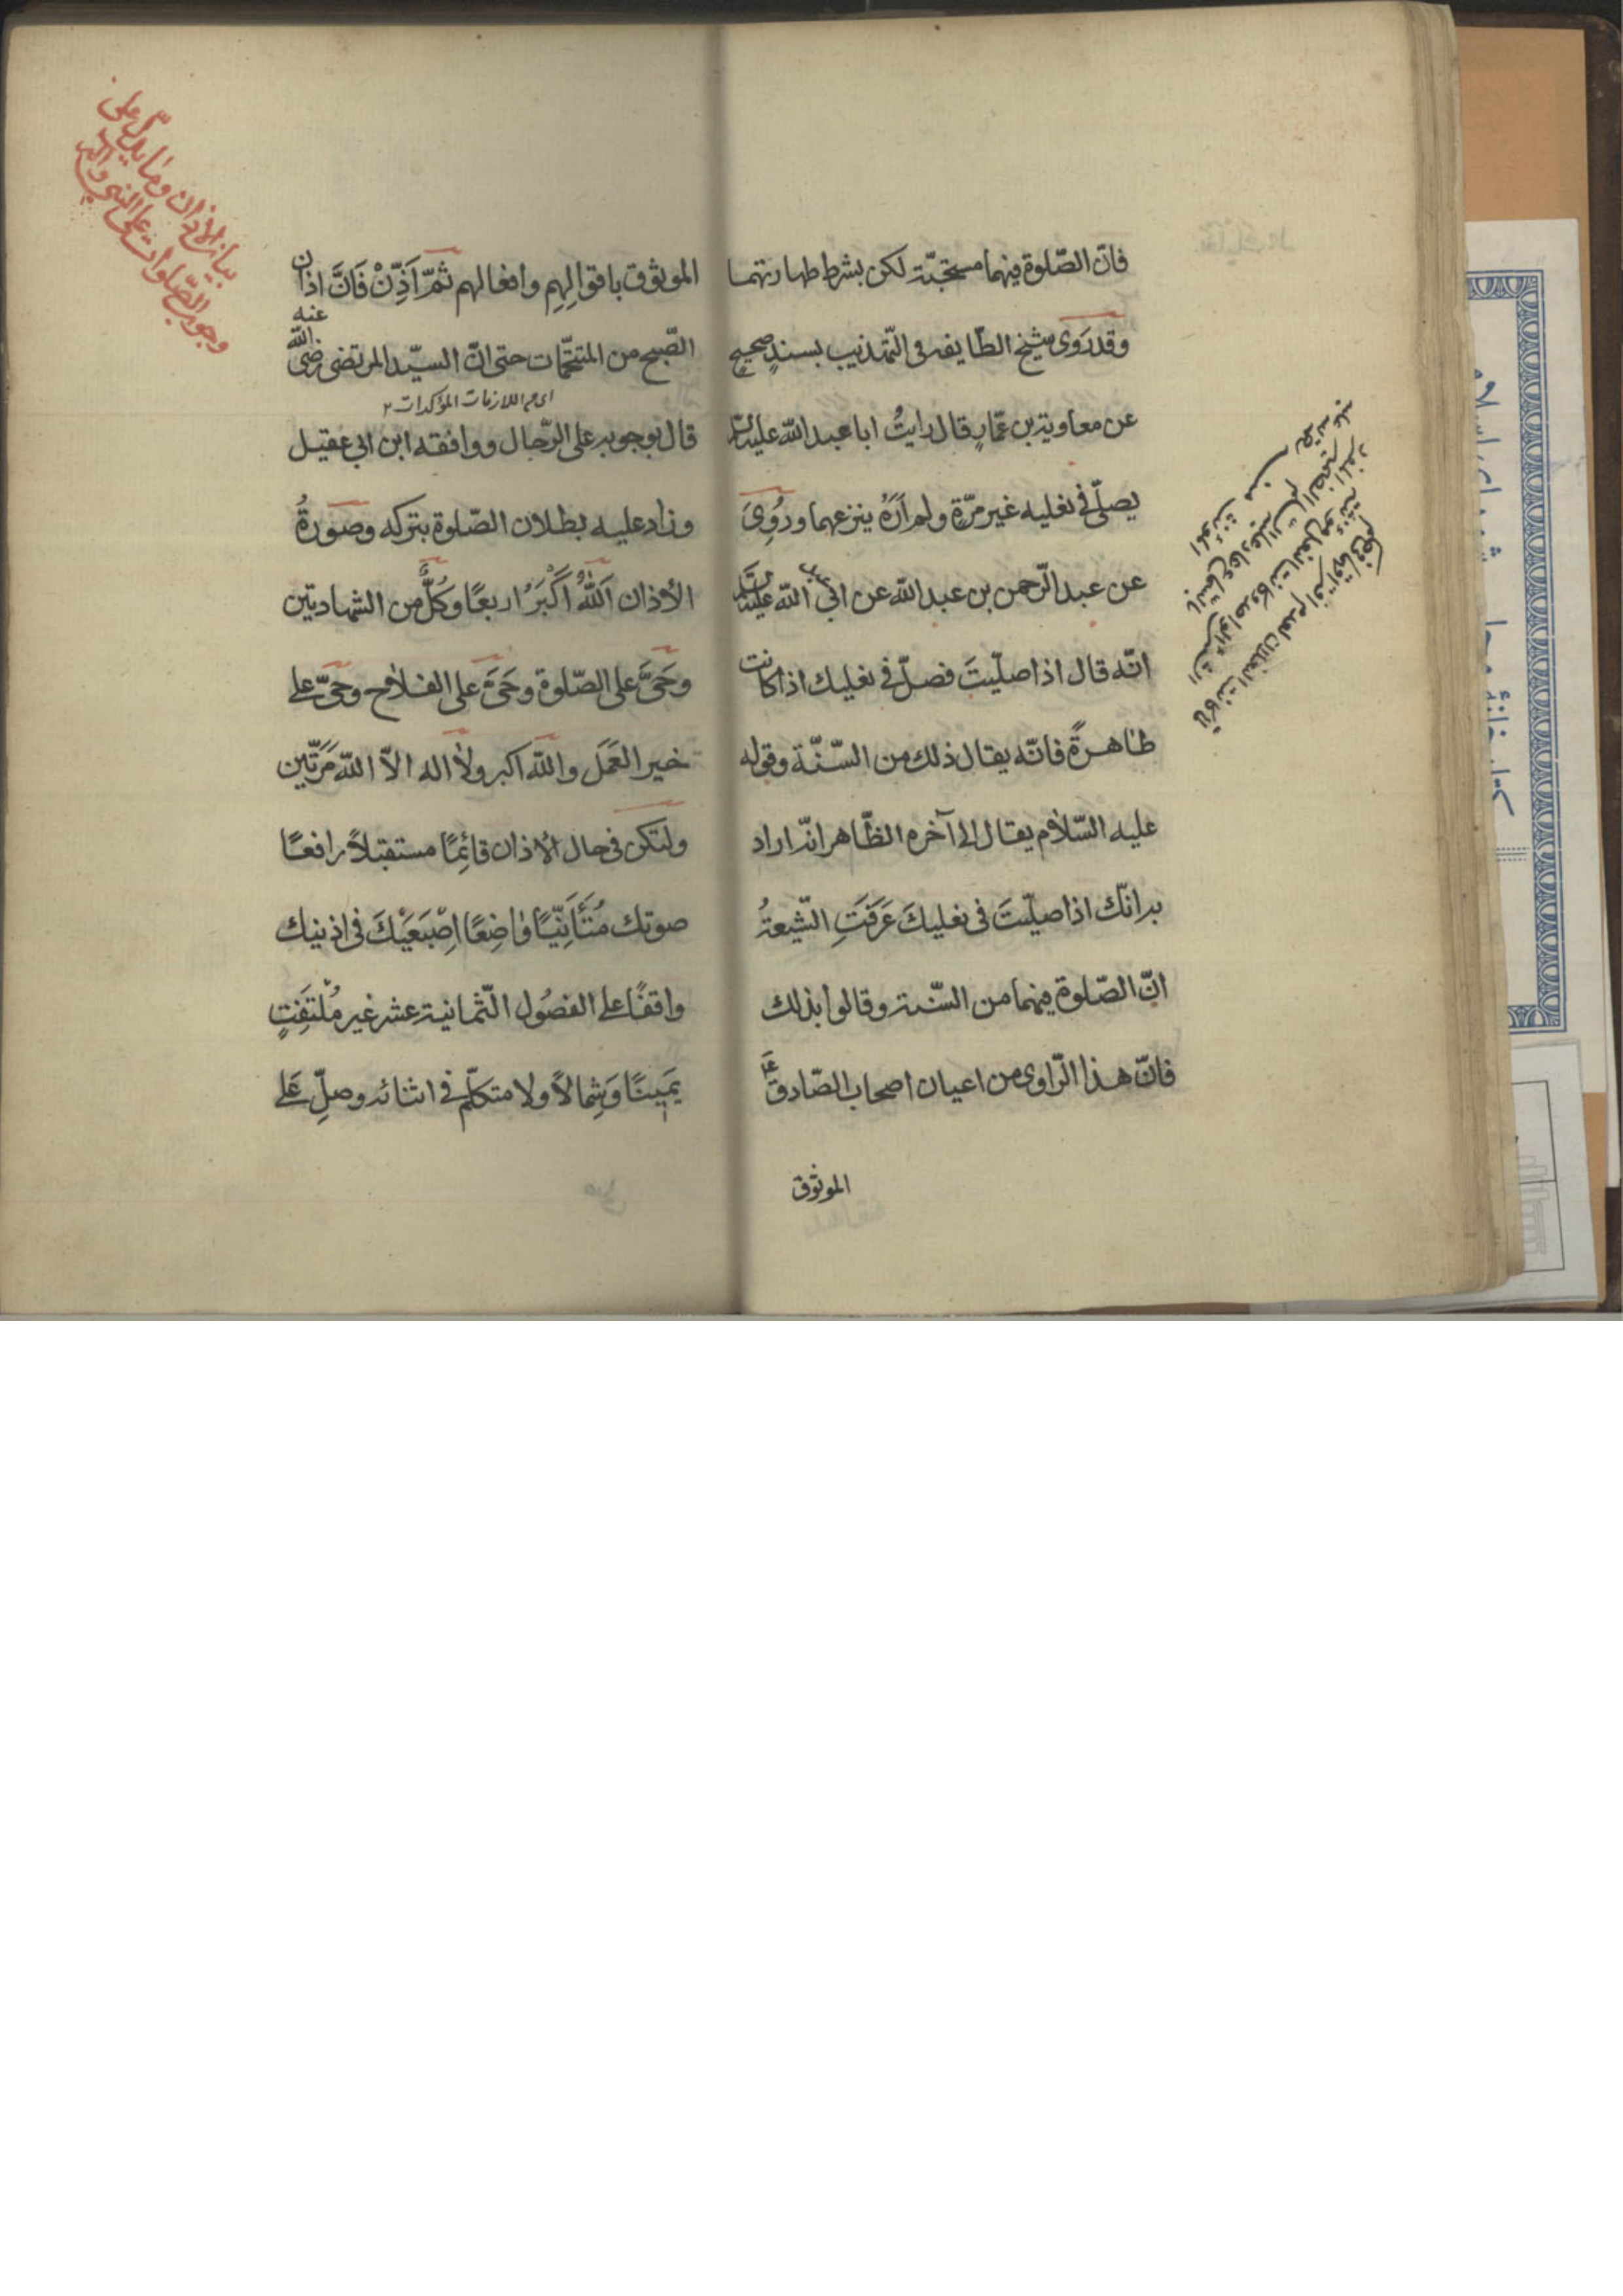 فانّ الصّلوة فيهما مستحبّة لكن بشرط طهارتهما
وقد رَوى شيخ الطّايفه فى التّهذيب بسندٍ صحيحٍ
عن معاوية بن عمّارٍ قال رايتُ ابا عبد الله عليه السّلم
يصلّى فى نعليه غير مرّةٍ ولم اَرَهُ ينزعهما ورُوِىَ
عن عبد الرّحمن بن عبد الله عن ابى عبد الله عليه السّلم
انّه قال اذا صلّيتَ فصلّ فى نعليك اذا كانت
طاهرةً فانّه يقال ذلك من السّنّة وقوله
عليه السّلام يقال الى آخره الظّاهر انّه اراد
به انّك اذا صلّيتَ فى نعليكَ عَرَفَتِ الشّيعةُ
انّ الصّلوة فيهما من السّنة وقالوا بذلك
فانّ هذا الرّاوى من اعيان اصحاب الصّادق ع
الموثوق
الموثوق باقوالِهِم وافعالهم ثمّ اَذِّنْ فَانَّ اذان
الصّبح من المتحتّمات حتى انّ السيّد المرتضى رضى الله عنه
اى من اللازمات المؤكدات
قال بوجوبه على الرّجال ووافقه ابن ابى عقيل
وزاد عليه بطلان الصّلوة بتركه وصورةُ
الأذان اَللّٰهُ اَكْبَرُ اربعًا وكلٌّ من الشهادتين
وحَىَّ على الصّلوة وحَىَّ على الفلاح وحَىَّ على
خير العَمَل والله اكبر ولا اله الاّ الله مَرّتَين
ولتكن فى حال الأذان قائِمًا مستقبلاً رافعًا
صوتك مُتَأَنِّيًا وٰاضِعًا اِصْبَعَيْكَ فى اذنيك
واقفًا على الفصُول الثّمانية عشر غير مُلْتَفِتٍ
يَمينًا وَشِمالاً ولا متكلّم فى اثنائه وصلِّ عَلى
بيان الأذان وما يدلّ على
وجوب الصّلوات على النبى وآله